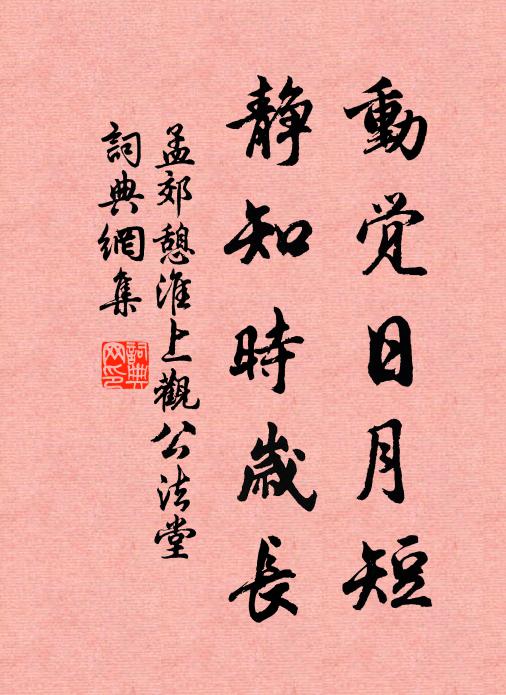 動觉日月短
静知時歲長
孟郊憩淮上觀公法堂
詞典網集
詞典
网印